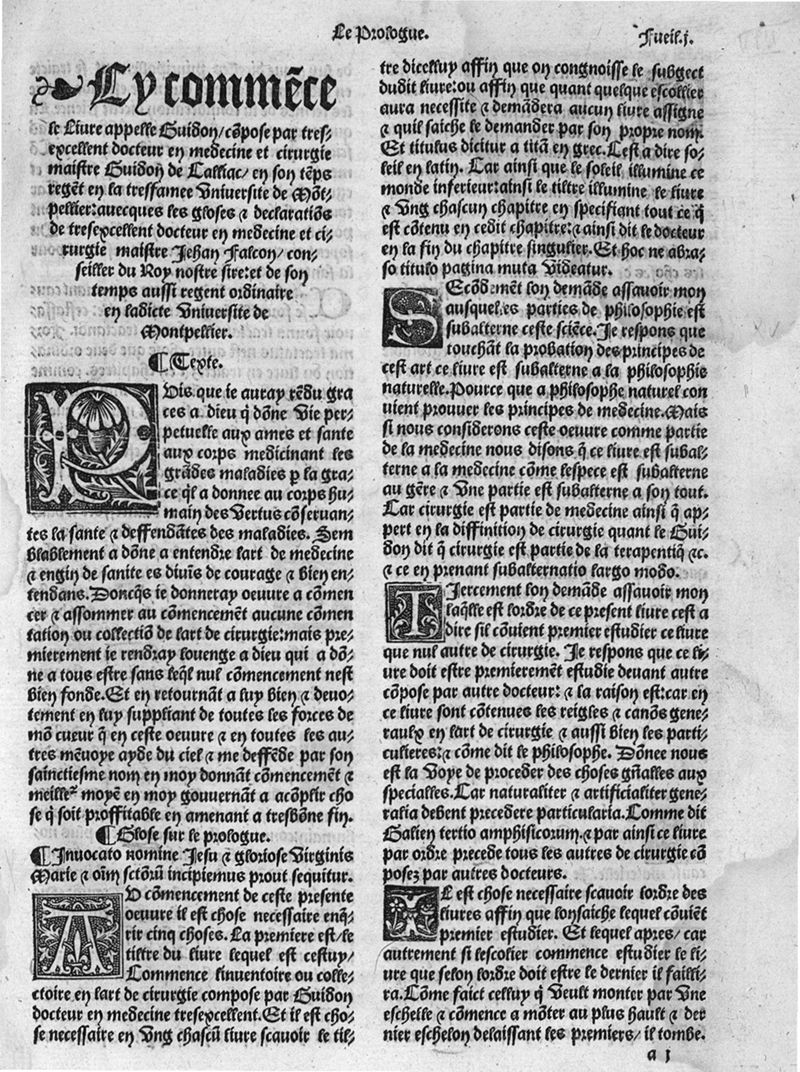 Le Prologue.
Fueil.j.
Cy commēce
le Livre appelle Guidon/ cōpose par tres⸗
excellent docteur en medecine et cirurgie
maistre Guidon de Calliac/ en son tēps
regēt en la tresfamee Université de Mōt⸗
pellier:avecques les gloses ⁊ declaratiōs
de tresexcellent docteur en medecine et ci⸗
rurgie maistre Jehan Falcon/ con⸗
seiller du Roy nostre sire:et de son
temps aussi regent ordinaire
en ladicte Vniversite de
Montpellier.
¶Texte.
PVis que ie auray rēdu gra
ces a dieu q̄ dōne Vie per⸗
petuelle aux ames et sante
aux corps medicinant les
grādes maladies p la gra⸗
ce q̄l a donnee au corps hu⸗
main des Vertus cōservan⸗
tes la sante ⁊ deffendātes des maladies. Sem
blablement a dōne a entendre lart de medecine
⁊ engin de sanite es divis de courage ⁊ bien en⸗
tendans. Doncq̄s ie donneray oeuvre a cōmen
cer ⁊ assommer au cōmencemēt aucune cōmen
tation ou collectiō de lart de cirurgie:mais pre⸗
mierement ie rendray louenge a dieu qui a dō⸗
ne a tous estre sans leq̄l nul cōmencement nest
bien fonde. Et en retournāt a luy bien ⁊ devo⸗
tement en luy suppliant de toutes les forces de
mō cueur q̄ en ceste oeuvre ⁊ en toutes les au⸗
tres mēvoye ayde du ciel ⁊ me deffēde par son
sainctiesme nom en moy donnāt cōmencemēt ⁊
meille² moyē en moy gouvernāt a acōplir cho
se q̄ soit proffitable en amenant a tresbōne fin.
¶Glose sur le prologue.
¶Invocato nomine Jesu ⁊ gloriose Virginis
Marie ⁊ oīm sctōrū incipiemus prout sequitur.
AV cōmencement de ceste presente
oeuvre il est chose necessaire enq̄⸗
rir cinq choses. La premiere est/le
tiltre du livre lequel est cestuy/
Commence linventoire ou colle⸗
ctoire en lart de cirurgie compose par Guidon
docteur en medecine tresexcellent. Et il est cho⸗
se necessaire en Vng chascū livre scavoir le til⸗
tre dicelluy affin que on congnoisse le subgect
dudit livre:ou affin que quant quelque escollier
aura necessite ⁊ demādera aucun livre assigne
⁊ quil saiche le demander par son propre nom.
Et titulus dicitur a titā en grec. Cest a dire so⸗
leil en latin. Car ainsi que le soleil illumine ce
monde inferieur:ainsi le tiltre illumine le livre
⁊ Vng chascun chapitre en specifiant tout ce q̄
est cōtenu en cedit chapitre:⁊ ainsi dit le docteur
en la fin du chapitre singulier. Et hoc ne abra⸗
so titulo pagina muta Videatur.
SEcōdemēt lon demāde assavoir mon
ausquelles parties de philosophie est
subalterne ceste sciēce. Je respons que
touchāt la probation des principes de
cest art ce livre est subalterne a la philosophie
naturelle. Pource que a philosophe naturel con
vient prouver les principes de medecine. Mais
si nous considerons ceste oeuvre comme partie
de la medecine nous disons q̄ ce livre est subal⸗
terne a la medecine cōme lespece est subalterne
au gēre ⁊ Vne partie est subalterne a son tout.
Car cirurgie est partie de medecine ainsi q̄ ap⸗
pert en la diffinition de cirurgie quant le Gui⸗
don dit q̄ cirurgie est partie de la terapentiq̄ ⁊c.
⁊ ce en prenant subalternatio largo modo.
TJercement lon demāde assavoir mon
laq̄lle est lordre de ce present livre cest a
dire sil cōvient premier estudier ce livre
que nul autre de cirurgie. Je respons que ce li⸗
vre doit estre premieremēt estudie devant autre
cōpose par autre docteur: ⁊ la raison est:car en
ce livre sont cōtenues les reigles ⁊ canōs gene⸗
raulx en lart de cirurgie ⁊ aussi bien les parti⸗
culieres:⁊ cōme dit le philosophe. Dōnee nous
est la Voye de proceder des choses gn̄alles aux
specialles. Car naturaliter ⁊ artificialiter gene⸗
ralia debent precedere particularia. Comme dit
Galien tertio amphisicorum.⁊ par ainsi ce livre
par ordre precede tous les autres de cirurgie cō
posez par autres docteurs.
IL est chose necessaire scavoir lordre des
livres affin que lonsaiche lequel cōviēt
premier estudier. Et lequel apres/ car
autrement si lescolier commence estudier le li⸗
vre que selon lordre doit estre le dernier il failli⸗
ra. Cōme faict celluy q̄ Veult monter par Vne
eschelle ⁊ cōmence a mōter au plus hault ⁊ der
nier eschelon delaissant les premiers/ il tombe.
a j